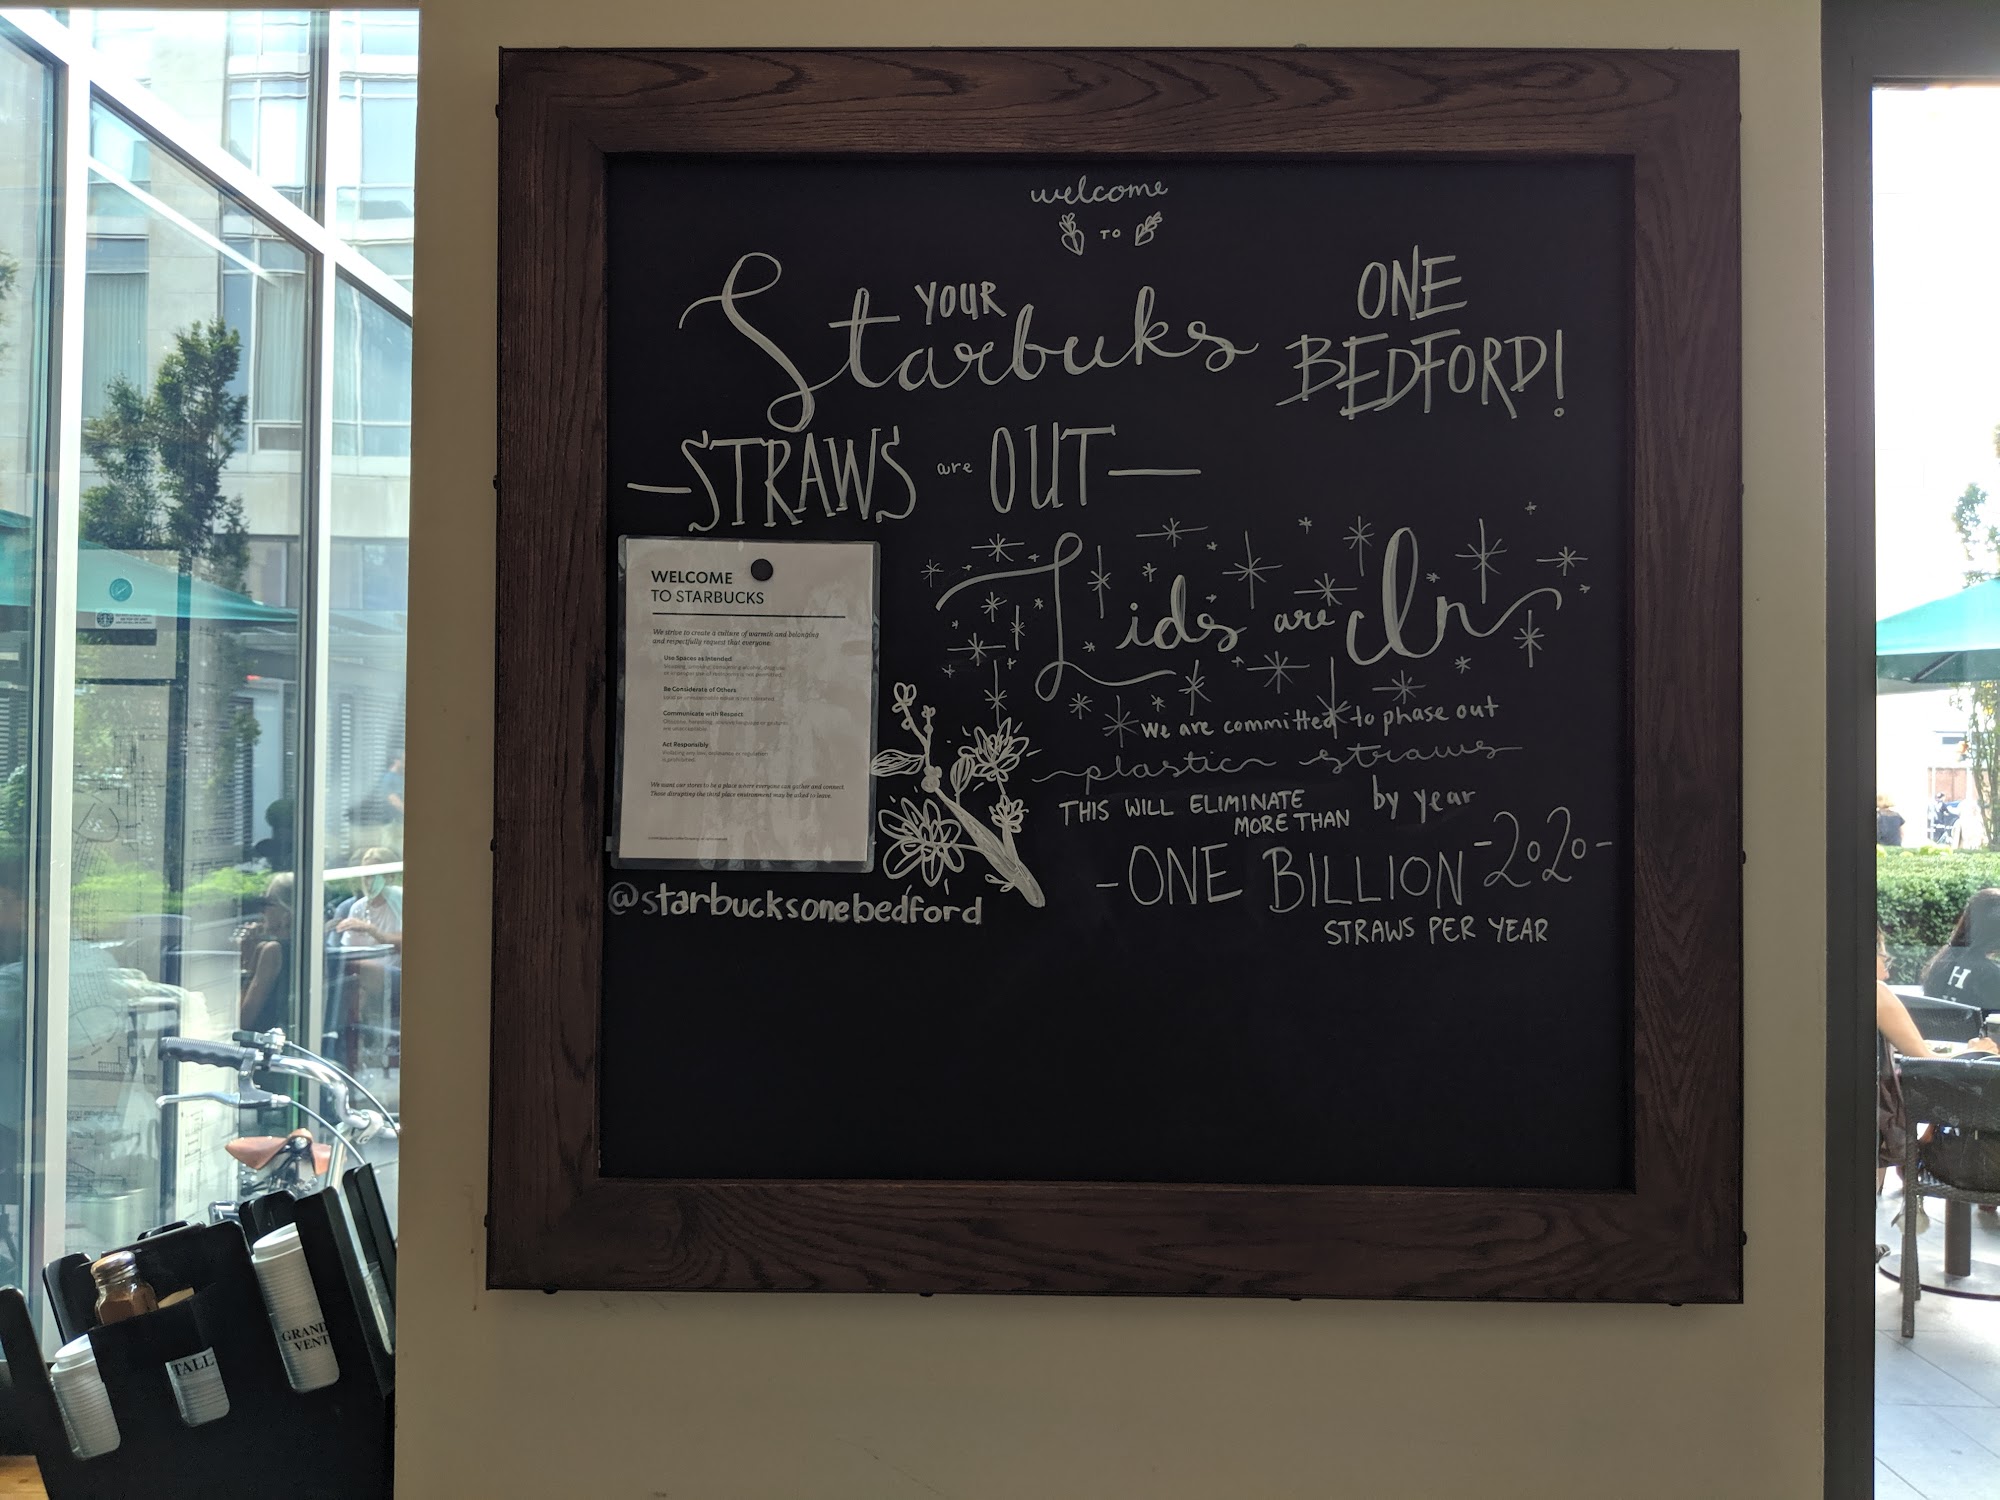 welcome
TO
YOUR
Starbuks
ONE
BEDFORD!
STRAWS are OUT
Lids are In
We are committed to phase out
plastic straws
by year
-2020-
THIS WILL ELIMINATE
MORE THAN
-ONE BILLION
STRAWS PER YEAR
WELCOME
TO STARBUCKS
We strive to create a culture of warmth and belonging
and respectfully request that everyone:
Use Spaces as Intended
Be Considerate of Others
Communicate with Respect
Act Responsibly
We want our stores to be a place where everyone can gather and connect.
Those disrupting the third place environment may be asked to leave.
@starbucksonebedford
TALL
GRAN
VENT
H